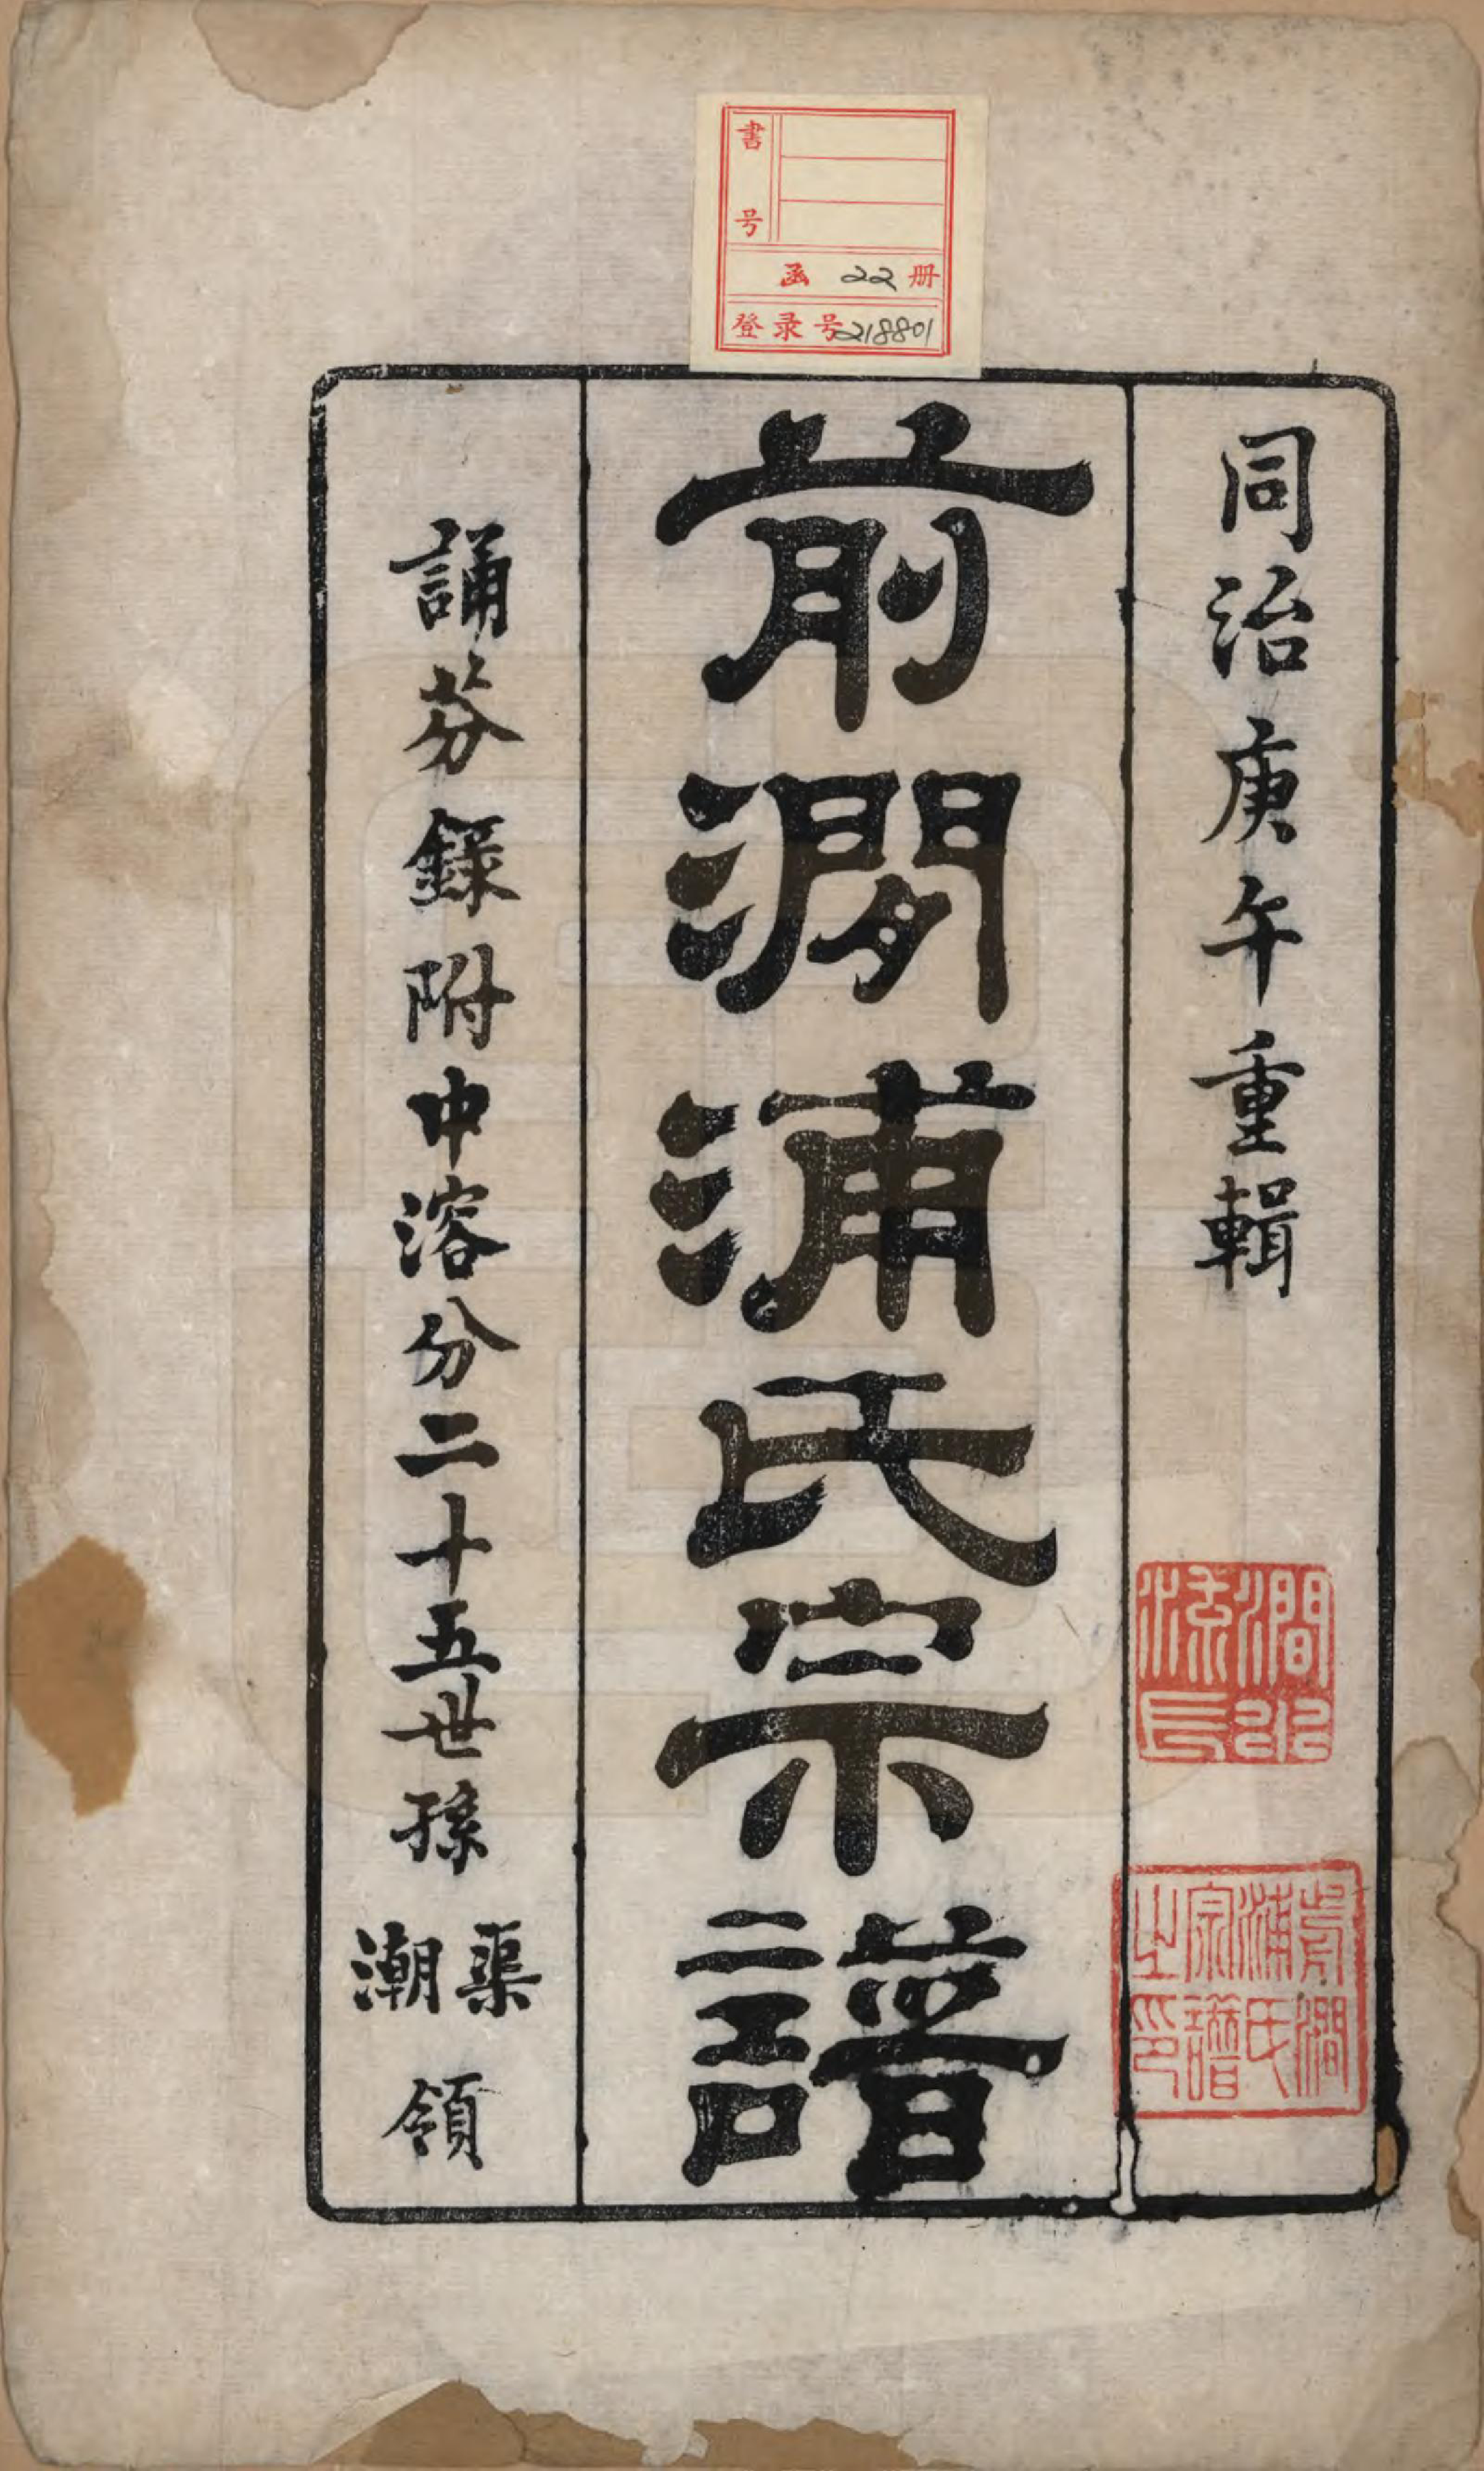 書号
函 22 册
登录号 218801
同治庚午重輯
前澗浦氏宗譜
誦芬錄附中溶分二十五世孫渠潮領
澗水源長
前澗浦氏宗譜之印